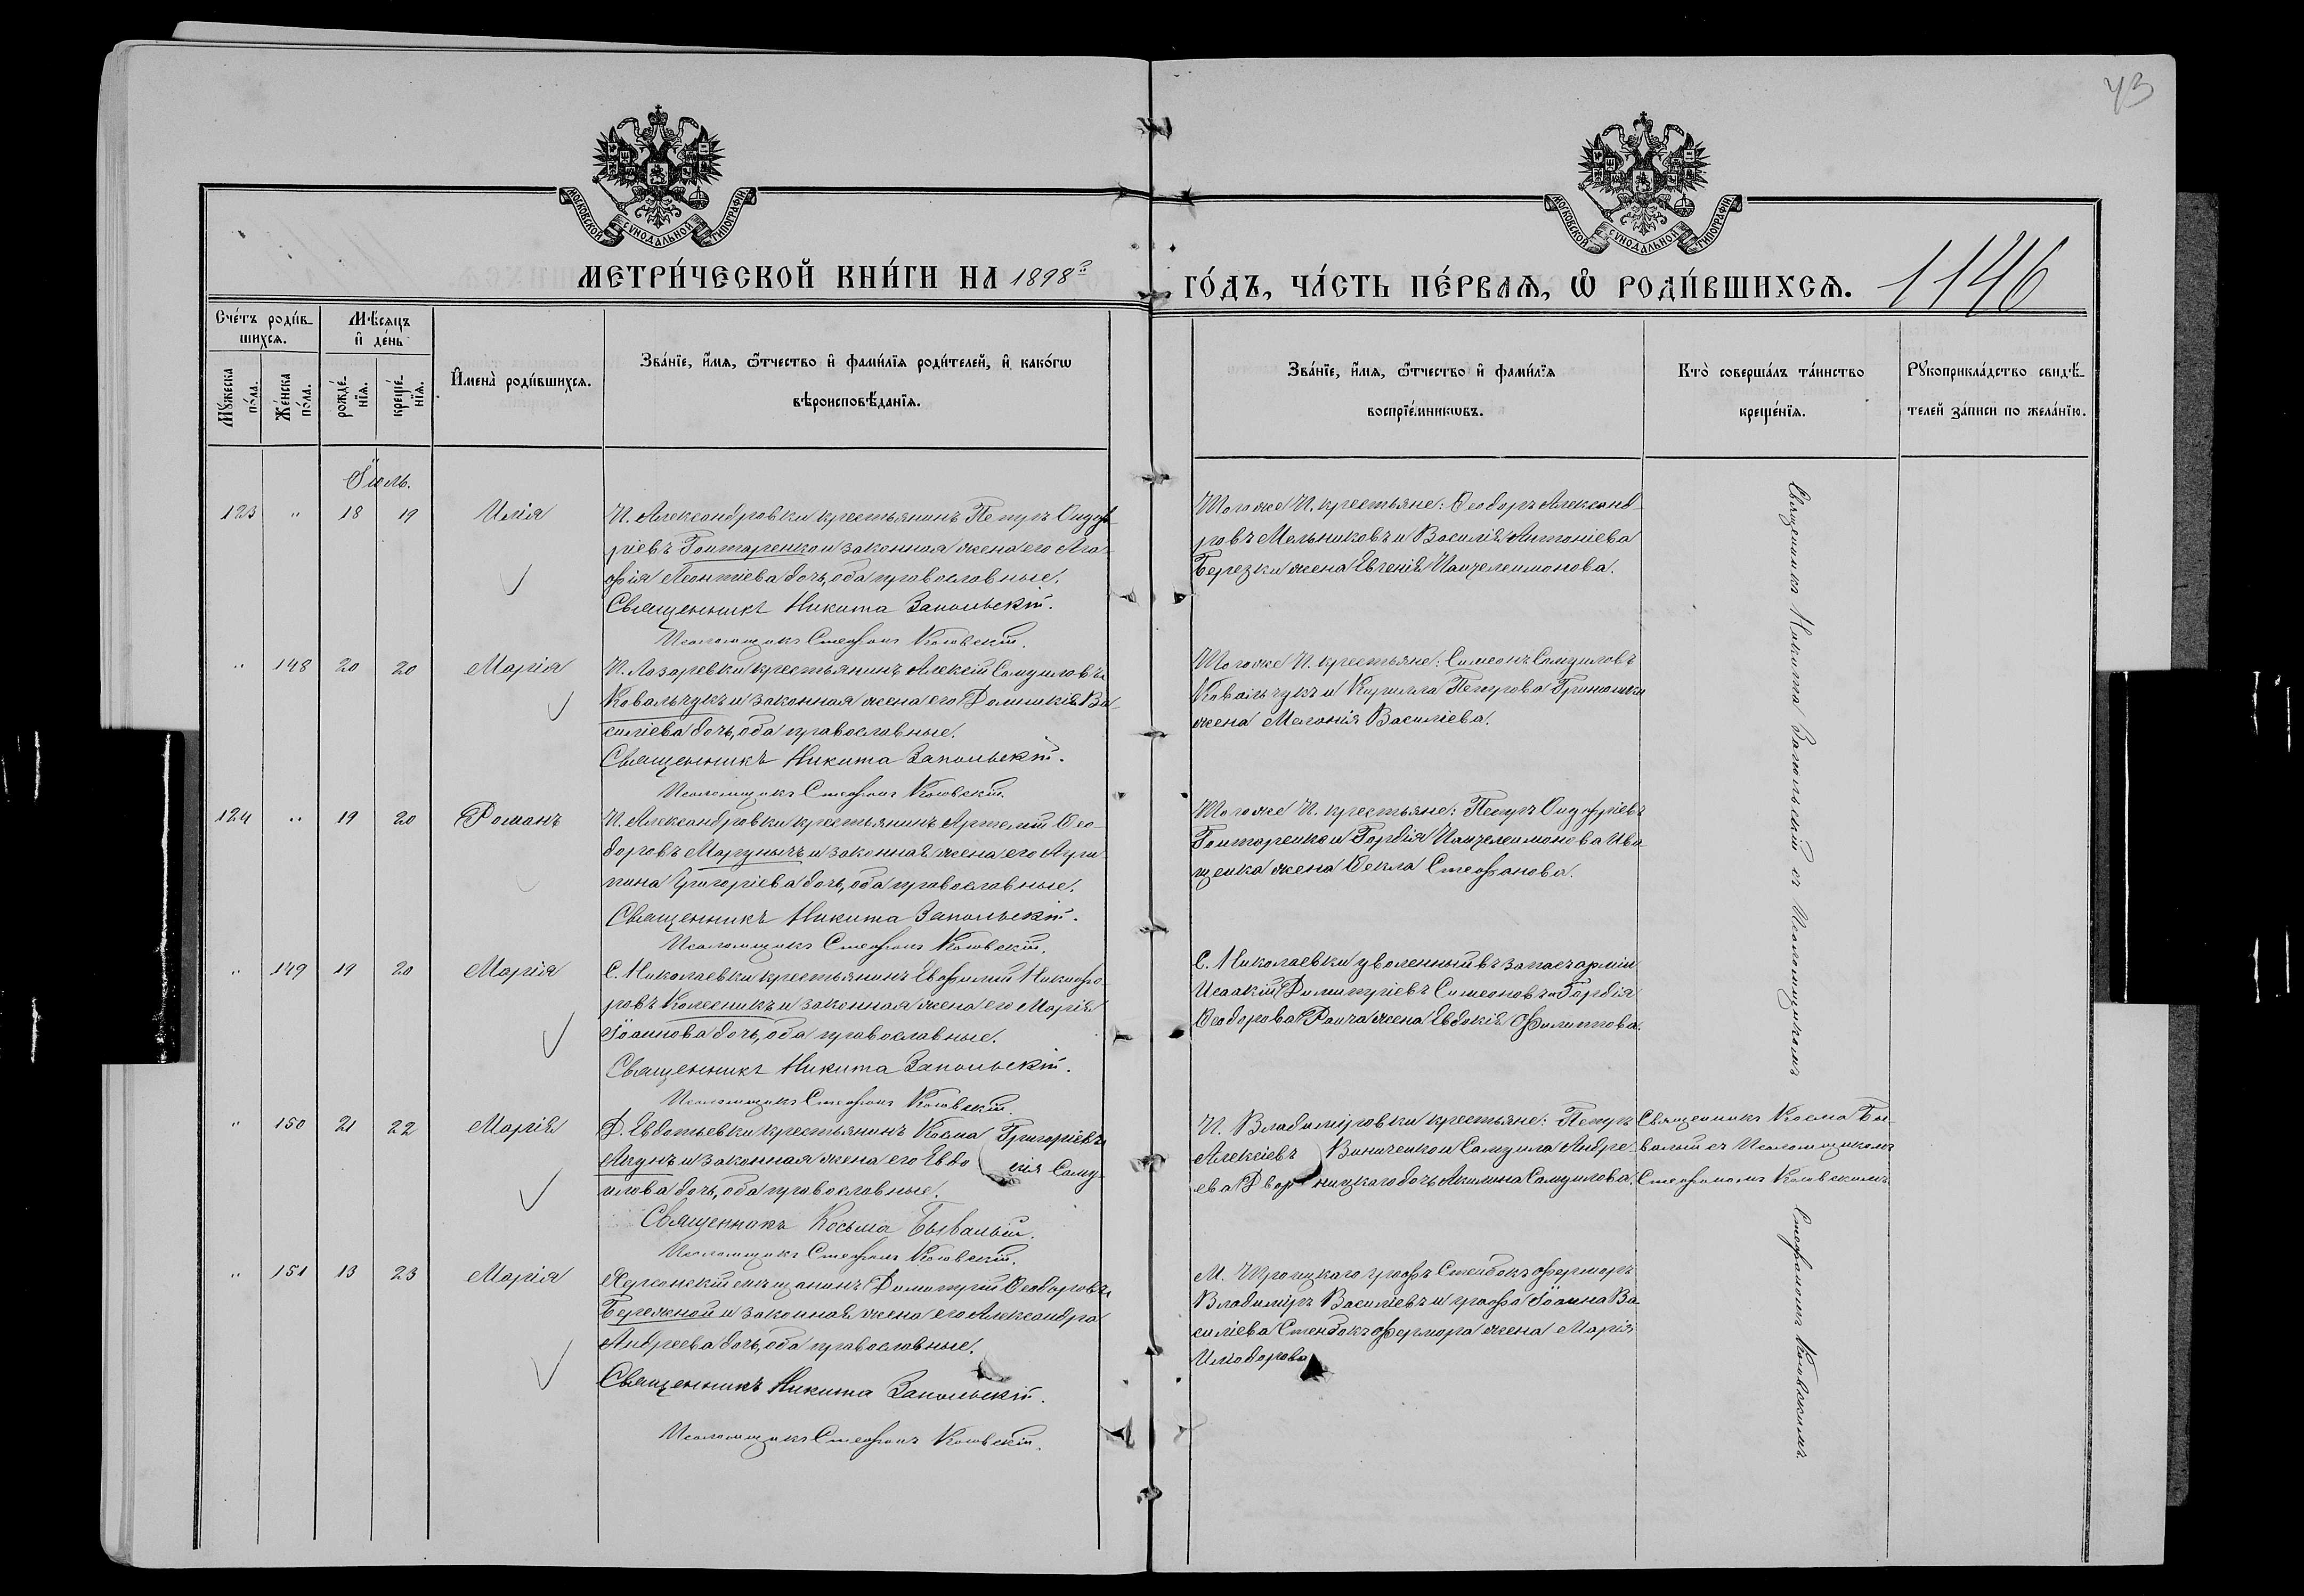 43
МОСКОВСКОЙ СѴНОДАЛЬНОЙ ТИПОГРАФІИ
МОСКОВСКОЙ СѴНОДАЛЬНОЙ ТИПОГРАФІИ
МЕТРИ́ЧЕСКОЙ КНИ́ГИ НА 1898й
ГО́ДЪ, ЧА́СТЬ ПЕ́РВАѦ, Ѽ РОДИ́ВШИХСѦ. 1146
Сче́тъ роди́в-
шихсѧ.
Мꙋ́жеска
по́ла.
Же́нска
по́ла.
Мѣ́сѧцъ
и҆ де́нь
рожде́-
нїѧ.
креще́-
нїѧ.
И҆мена̀ роди́вшихсѧ.
Зва́нїе, и҆́мѧ, ѻ҆́тчество и҆ фами́лїѧ роди́телей, и҆ како́гѡ
вѣроисповѣ́данїѧ.
Зва́нїе, и҆́мѧ, ѻ҆́тчество и҆ фами́лїѧ
воспрїе́мникѡвъ.
Кто̀ соверша́лъ та́инство
креще́нїѧ.
Рꙋкоприкла́дство свидѣ́-
телей за́писи по жела́нїю.
Іюль.
123 " 18 19 Илія
П. Александровки крестьянинъ Петръ Онуф-
ріевъ Гонтаренко и законная жена его Ага-
фія Леонтіева дочь, оба православные.
Священникъ Никита Запольскій.
Псаломщикъ Стефанъ Котовскій.
Тогоже П. крестьяне: Ѳеодоръ Александ-
ровъ Мельниковъ и Василія Антоніева
Березки жена Евгенія Панѵелеимонова.
" 148 20 20 Марія
П. Лазаревки крестьянинъ Алексій Самуиловъ
Ковальчукъ и законная жена его Домникія Ва-
силіева дочь, оба православные.
Священникъ Никита Запольскій.
Псаломщикъ Стефанъ Котовскій.
Тогоже П. крестьяне: Симеонъ Самуиловъ
Ковальчукъ и Кирилла Петрова
жена Меланія Василіева.
124 " 19 20 Романъ
П. Александровки крестьянинъ Артемій Ѳео-
доровъ Марунычъ и законная жена его Агри-
пина Григоріева дочь, оба православные.
Священникъ Никита Запольскій.
Псаломщикъ Стефанъ Котовскій.
Тогоже П. крестьяне: Петръ Онуфріевъ
Гонтаренко и Гордія Панѵелеимонова Ива-
щенка жена Ѳекла Стефанова.
" 149 19 20 Марія
С. Николаевки крестьянинъ Евфимій Никифо-
ровъ Колесникъ и законная жена его Марія
Іоаннова дочь, оба православные.
Священникъ Никита Запольскій.
Псаломщикъ Стефанъ Котовскій.
С. Николаевки уволенный въ запасъ арміи
Исаакій Димитріевъ Симеоновъ и Гордія
Ѳеодорова жена Евдокія Филиппова.
" 150 21 22 Марія
Д. Евдотьевки крестьянинъ Косма Григоріевъ
и законная жена его Евдо кія Саму-
илова дочь, оба православные.
Священникъ Косьма Бывалый.
Псаломщикъ Стефанъ Котовскій.
П. Владиміровки крестьяне: Петръ
Алексіевъ Винниченко и Самуила Андре-
ева Двор ницкаго дочь Акилина Самуилова.
Священникъ Косма Бы-
валый съ Псаломщикомъ
Стефаномъ Котовскимъ
" 151 13 23 Марія
Херсонскій мѣщанинъ Димитрій Ѳеодоровъ
Бережной и законная жена его Александра
Андреева дочь, оба православные.
Священникъ Никита Запольскій.
Псаломщикъ Стефанъ Котовскій.
М. Троицкаго графъ Стенбокъ Ферморъ
Владиміръ Василіевъ и графа Іоанна Ва-
силіева Стенбокъ Фермора жена Марія
Священникъ Никита Запольскій съ Псаломщикомъ
Стефаномъ Котовскимъ.